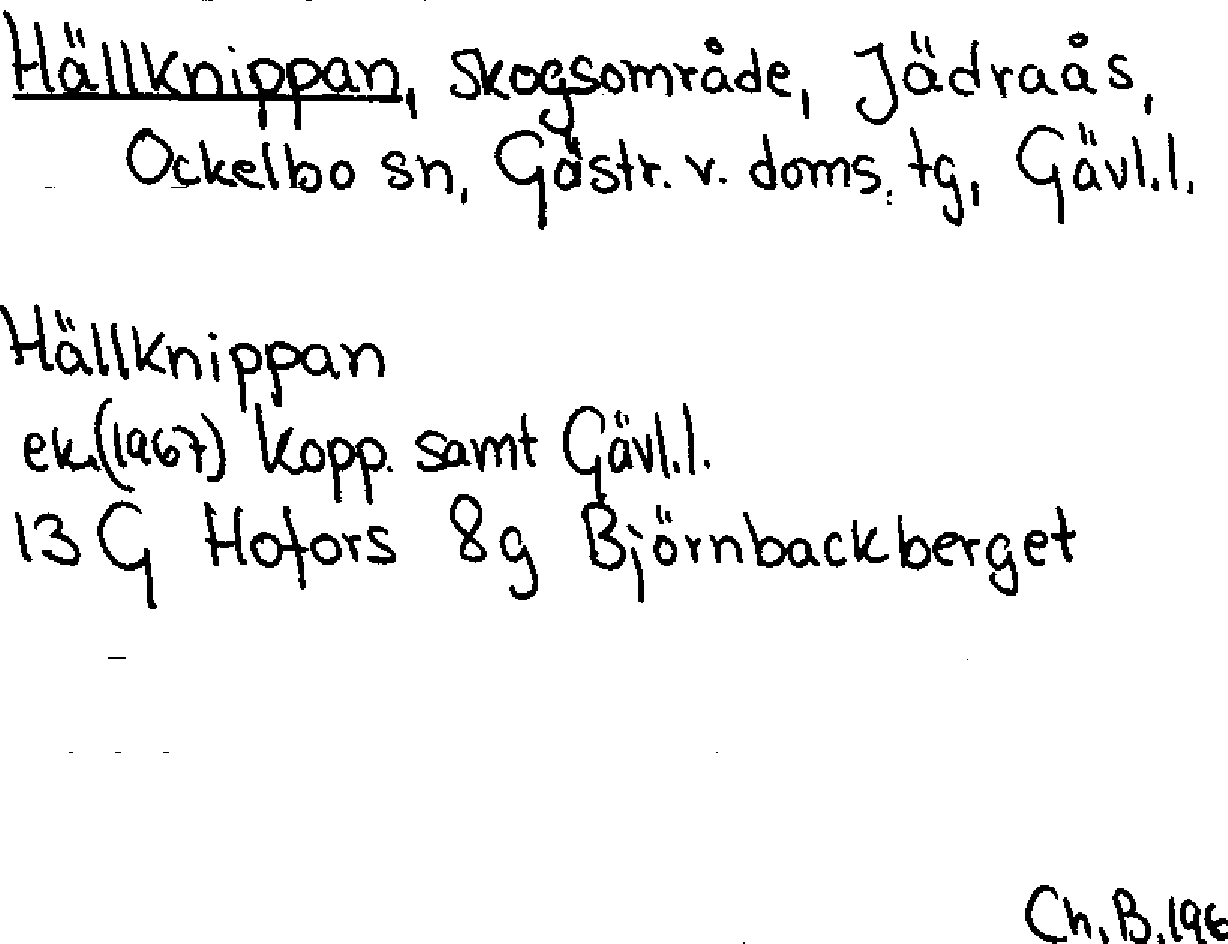 Hällknippan, skogsområde, Jädraås,
Ockelbo sn, Gästr. v. doms. tg, Gävl.l.
Hällknippan
ek.(1967) Kopp. samt Gävl.l.
13 G Hofors 8g Björnbackberget
Ch. B. 196